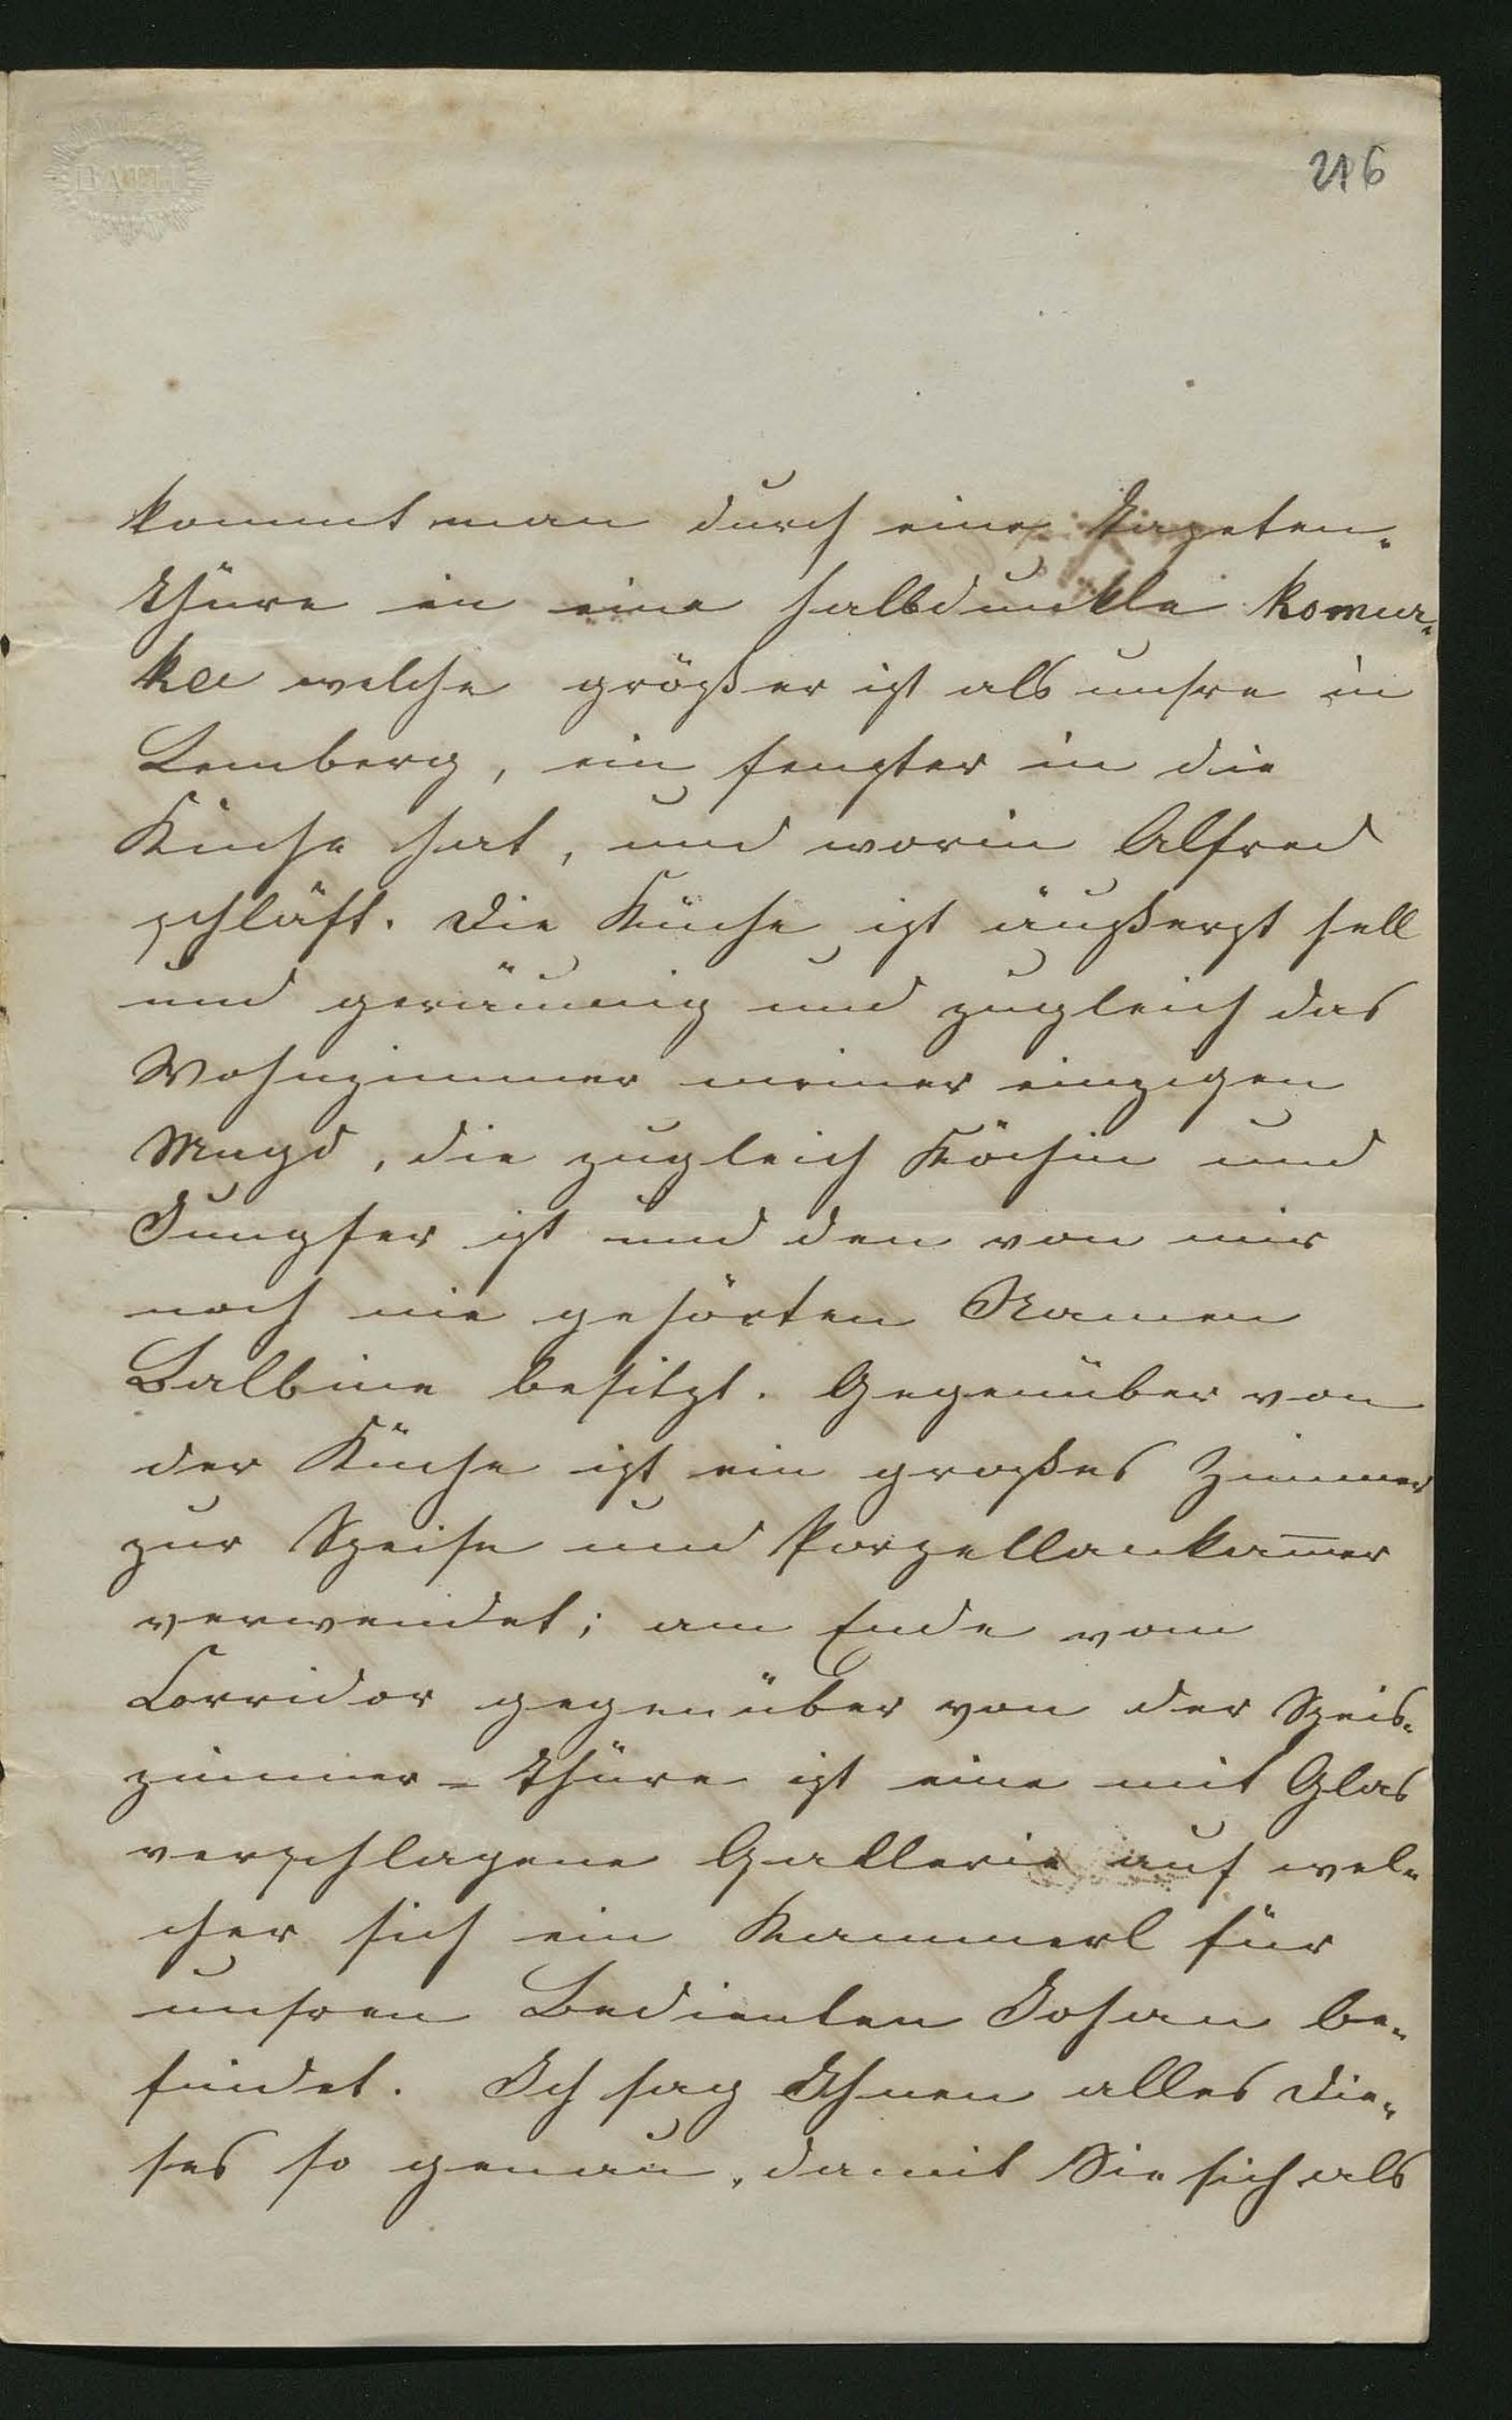 BATH
216
kommt man durch eine Tapeten-
thüre in eine halbdunkle komur-
ka welche größer ist als unsre in
Lemberg, ein fenster in die
Küche hat, und worin Alfred
schläft. Die Küche ist äußerst hell
und geräumig und zugleich das
Wohnzimmer meiner einzigen
Magd, die zugleich Köchin und
Jungfer ist und den von mir
noch nie gehörten Namen
Balbine besitzt. Gegenüber von
der Küche ist ein großes Zimmer
zur Speise und Porzellankam̅er
verwendet; am Ende vom
Corridor gegenüber von der Speis-
zimmer-thüre ist eine mit Glas
verschlagene Gallerie auf wel-
cher sich ein Kammerl für
unsren Bedienten Johan be-
findet. Ich sag Ihnen alles die-
ses so genau, damit Sie sich als